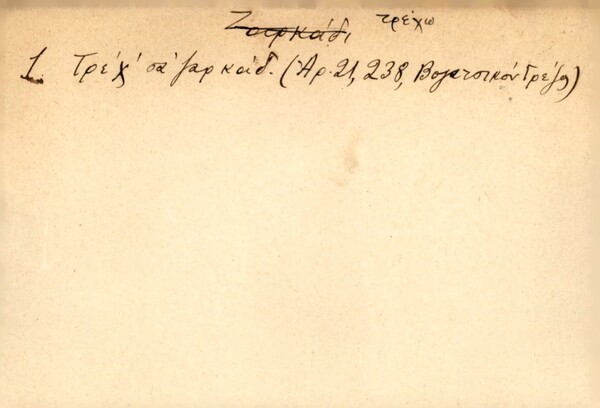 Ζαρκάδι τρέχω
1. Τρέχ' σα ζαρκάδ. (Ἀρ. 21, 238, Βογατσικόν Γρέβ)